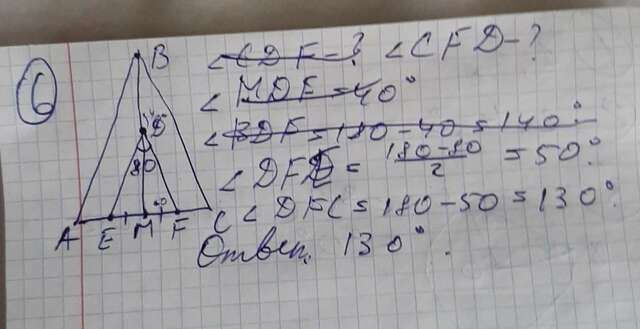 6
B
D
80
A E M F C
<CDF-? <CFD-?
<MDF=40°
<BDF=180-40=140°.
<DFE = 180-80/2 = 50°.
<DFC=180-50=130°.
Ответ. 130°.